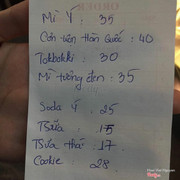 Mì Ý : 35
Cơm trộn Hàn Quốc : 40
Tokbokki : 30
Mì tương đen : 35
Soda Ý : 25
TSữa : 15
TSữa thái : 17
Cookie : 28